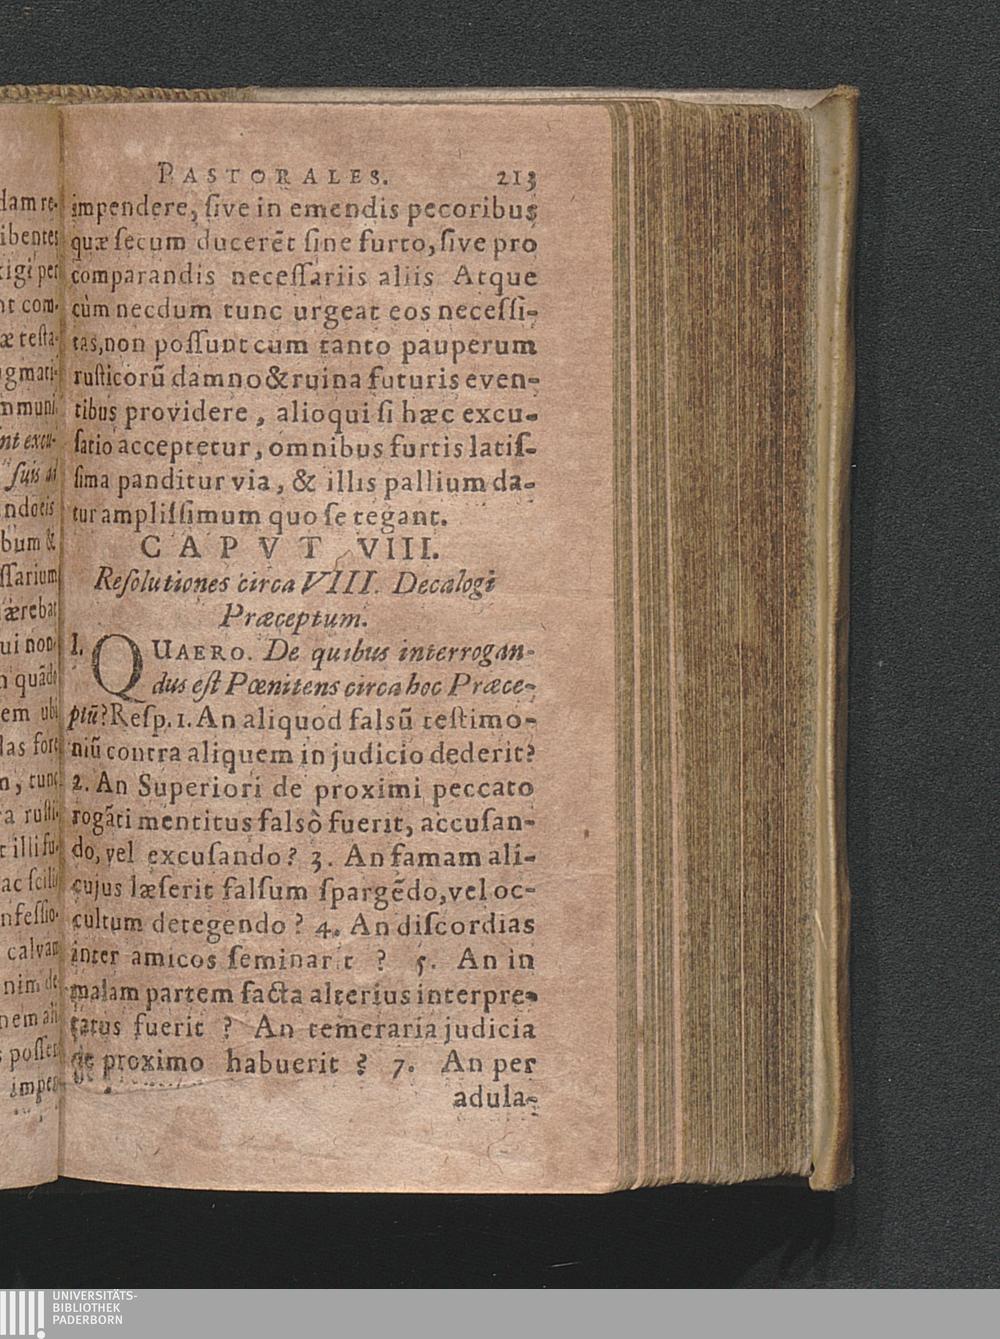 PASTORALES. 213
impendere, ſive in emendis pecoribus
quæ ſecum ducerēt ſine furto, ſive pro
comparandis neceſſariis aliis Atque
cùm necdum tunc urgeat eos neceſſi-
tas, non poſſunt cum tanto pauperum
ruſticorū damno & ruina futuris even-
tibus providere, alioqui ſi hæc excu-
ſatio acceptetur, omnibus furtis latiſ-
ſima panditur via, & illis pallium da-
tur ampliſſimum quo ſe tegant.
CAPVT VIII.
Reſolutiones circa VIII. Decalogi
Præceptum.
I. QUAERO. De quibus interrogan-
dus eſt Pœnitens circa hoc Præce-
ptū? Reſp. 1. An aliquod falsū teſtimo-
niū contra aliquem in judicio dederit?
2. An Superiori de proximi peccato
rogāti mentitus falsò fuerit, accuſan-
do, vel excuſando? 3. An famam ali-
cujus læſerit falſum ſpargēdo, vel oc-
cultum detegendo? 4. An diſcordias
inter amicos ſeminarit ? 5. An in
malam partem facta alterius interpre-
tatus fuerit ? An temeraria judicia
de proximo habuerit ? 7. An per
adula-
dam re-
ibentes
xigi per
nt com-
æ teſta-
gmati-
mmuni
int excu-
ſuis ad
ndotis
bum &
ſſarium
ærebat
ui non
n quādo
em ubi
las fore
n, tunc
ra ruſti-
t illi fu-
ac ſcili
nfeſſio-
calvam
nim de
nem ali
s poſſet
impen
UNIVERSITÄTS-
BIBLIOTHEK
PADERBORN